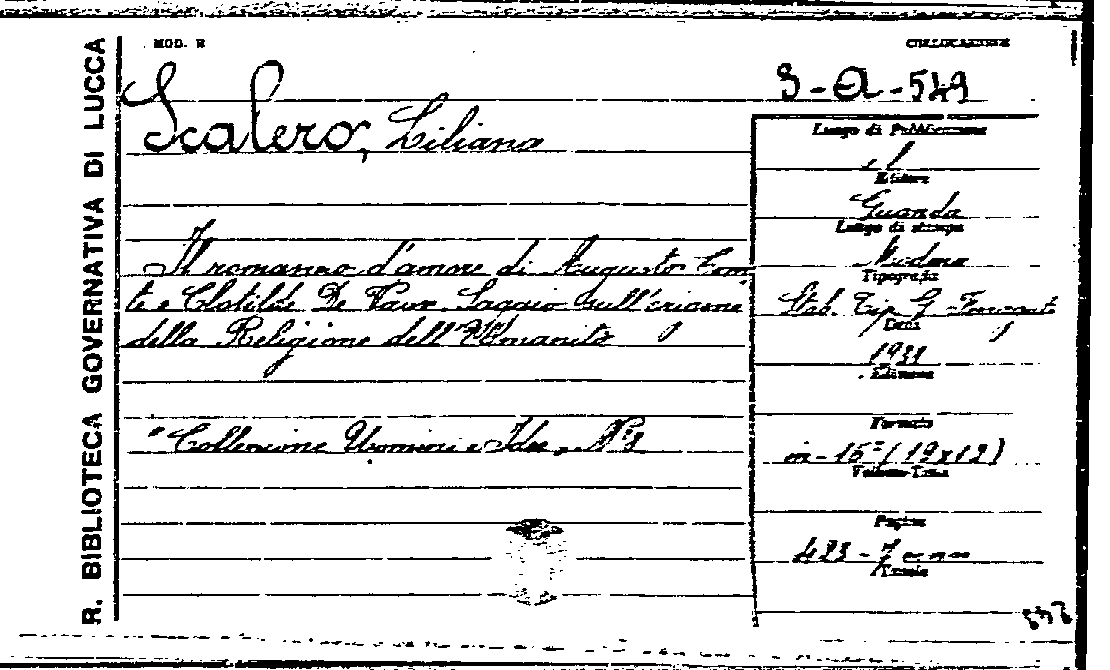 R. BIBLIOTECA GOVERNATIVA DI LUCCA
MOD. R
COLLOCAZIONE
Scalero, Liliana
Il romanzo d'amore di Augusto Com
te e Clotilde De Vaux. Saggio sull'origine
della Religione dell'Umanità
"Collezione Uomini e Idee" N°
Luogo di Pubblicazione
Editore
Guanda
Luogo di stampa
Modena
Tipografia
Stab. Tip. G. Ferraguti
Data
Edizione
Formato
in-16° (19x12)
Volume-Tomo
Pagine
Tavole